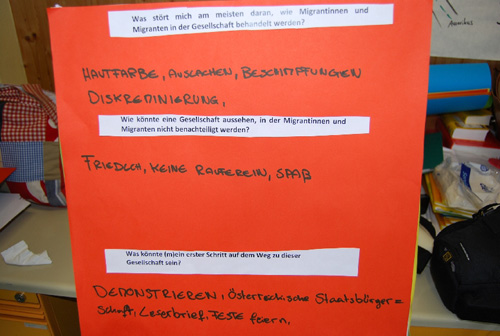 Was stört mich am meisten daran, wie Migrantinnen und
Migranten in der Gesellschaft behandelt werden?
HAUTFARBE, AUSLACHEN, BESCHIMPFUNGEN
DISKREMINIERUNG,
Wie könnte eine Gesellschaft aussehen, in der Migrantinnen und
Migranten nicht benachteiligt werden?
FRIEDLICH, KEINE RAUFEREIN, SPAß
Was könnte (m)ein erster Schritt auf dem Weg zu dieser
Gesellschaft sein?
DEMONSTRIEREN, Österreichische Staatsbürger=
schaft, Leserbrief, FESTE feiern,